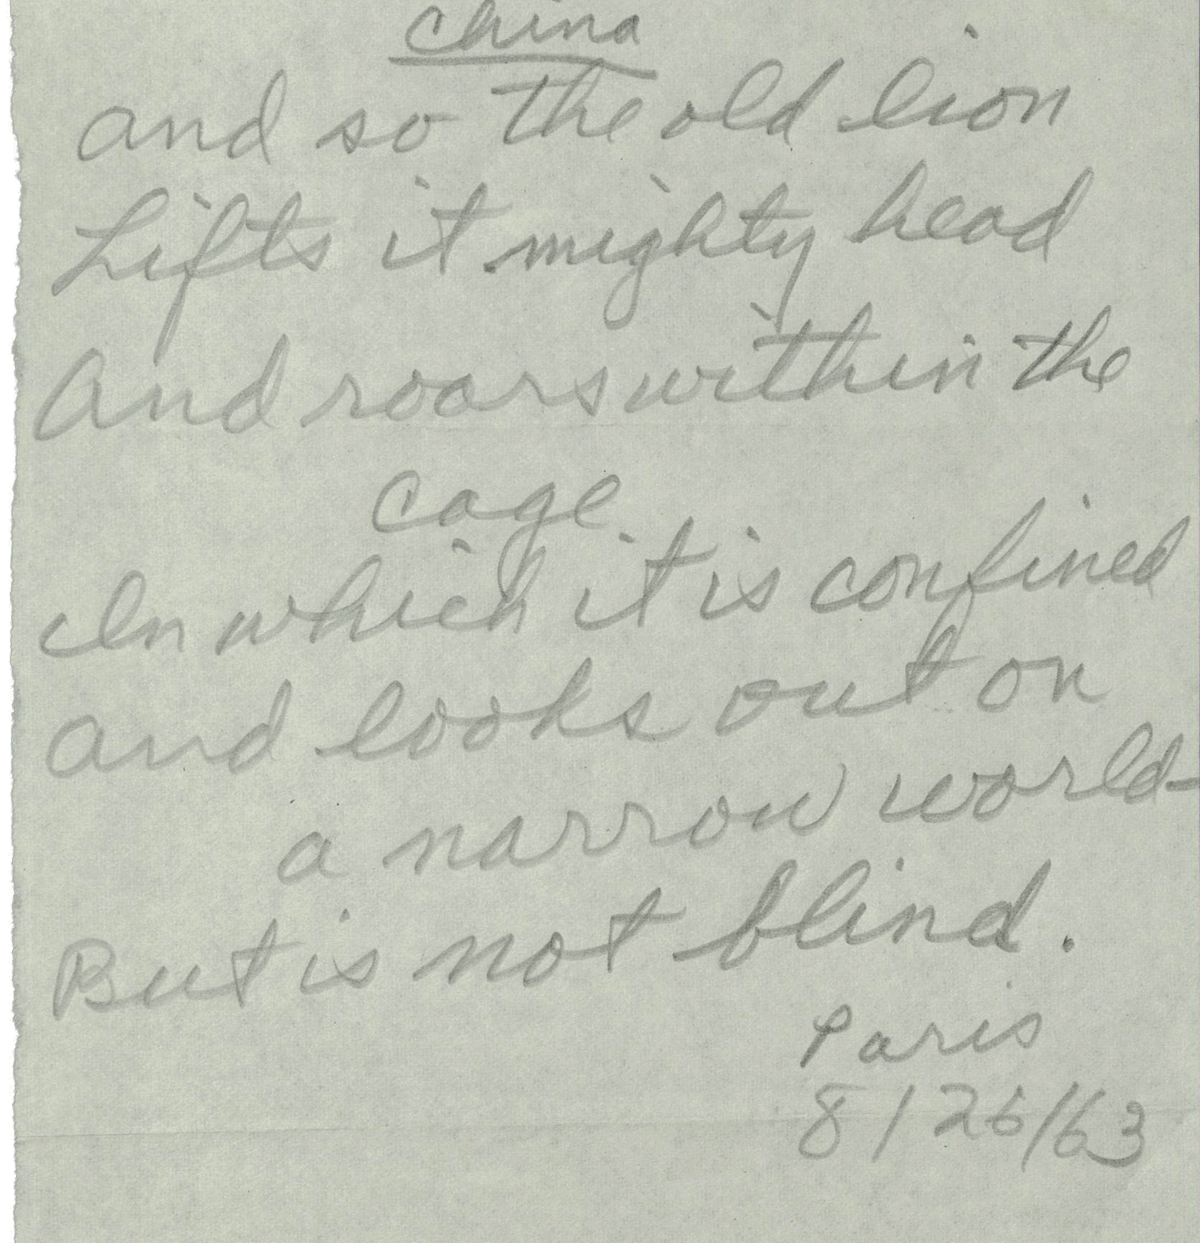 China
and so the old lion
Lifts it mighty head
And roars within the
cage
In which it is confined
and looks out on
a narrow world-
But is not blind.
Paris
8/26/63